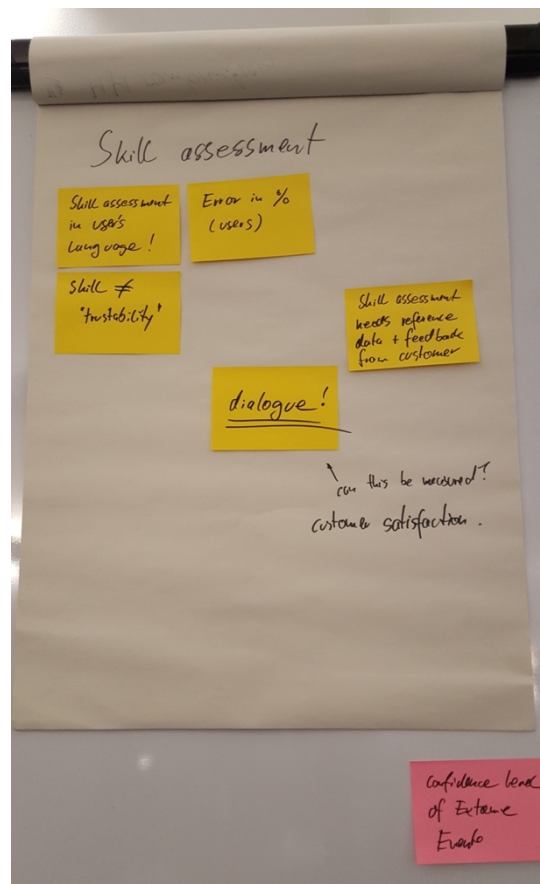 Skill assessment
Skill assessment
in user's
language!
Error in %
(users)
Skill ≠
"trustability"
Skill assessment
needs reference
data + feedback
from customer
dialogue!
can this be measured?
customer satisfaction.
Confidence level
of Extreme
Events